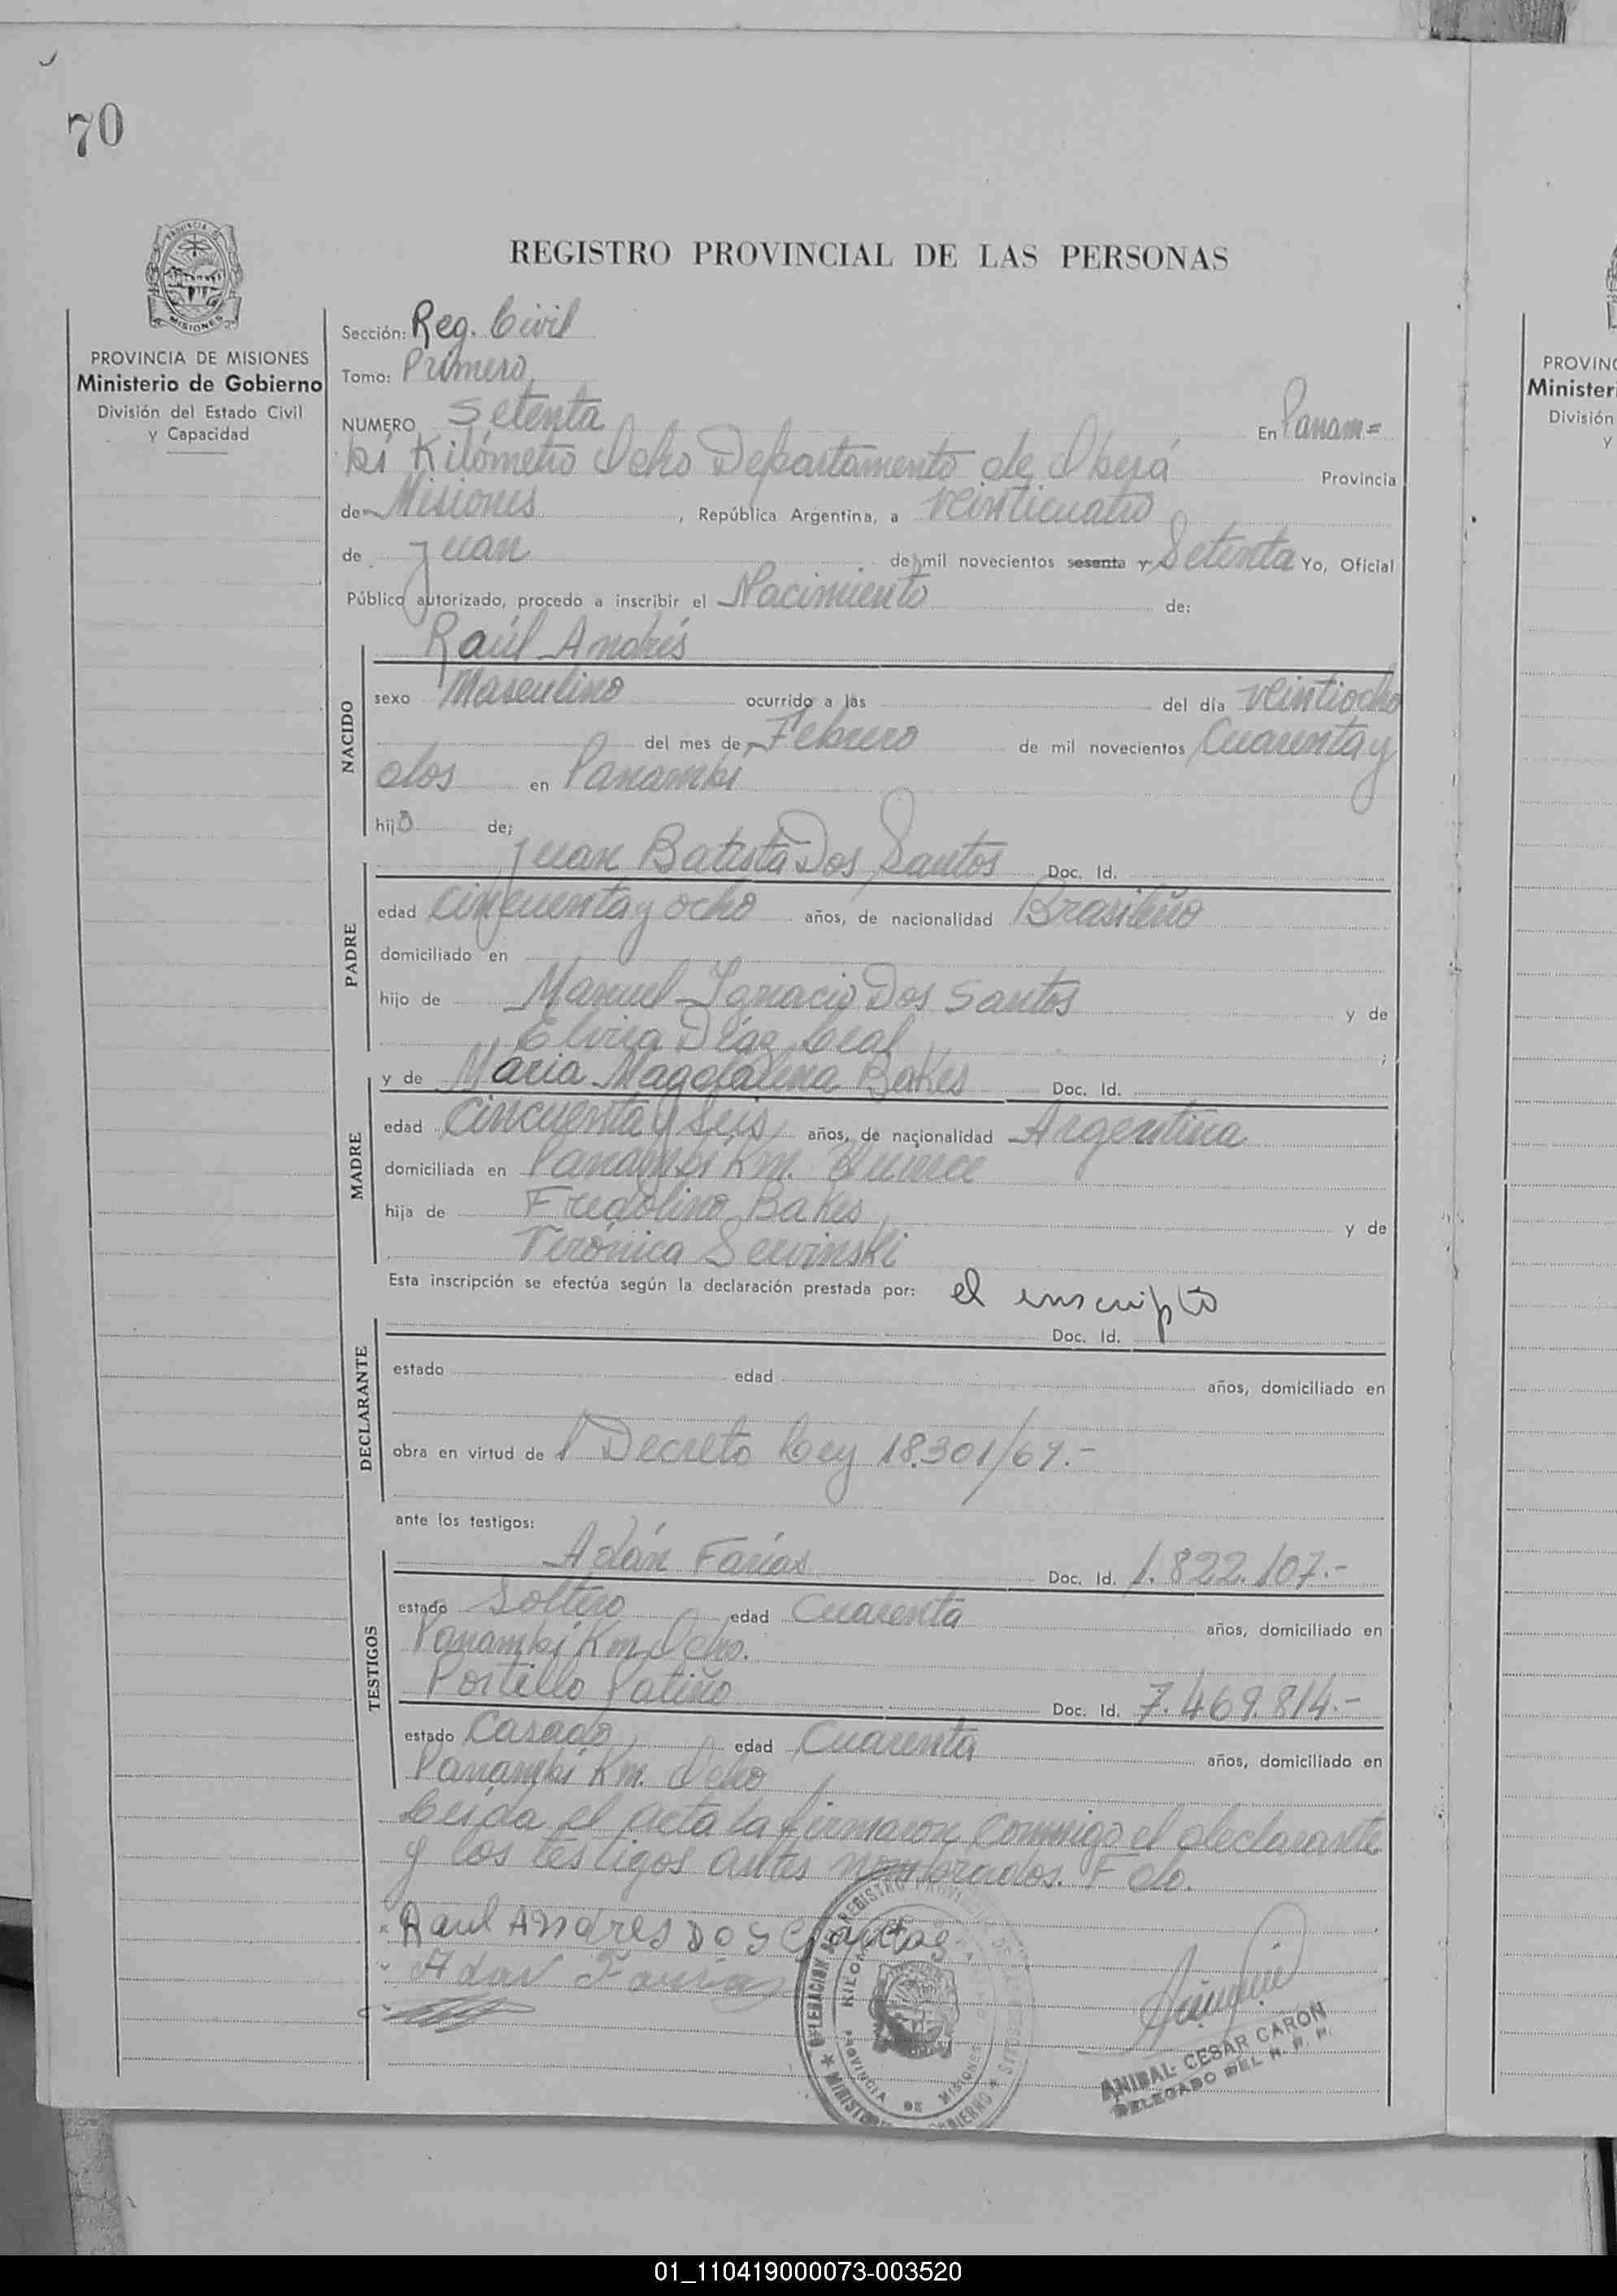 70
REGISTRO PROVINCIAL DE LAS PERSONAS
PROVINCIA DE MISIONES
Ministerio de Gobierno
División del Estado Civil
y Capacidad
Sección: Reg. Civil
Tomo: Primero
NUMERO Setenta En Panam=
bí Kilómetro Ocho Departamento de Oberá Provincia
de Misiones, República Argentina, a veinticuatro
de Juan de mil novecientos sesenta y Setenta Yo, Oficial
Público autorizado, procedo a inscribir el Nacimiento de:
NACIDO
Raúl Andrés
sexo Masculino ocurrido a las del día veintiocho
del mes de Febrero de mil novecientos Cuarenta y
dos en Panambí
hijo de;
PADRE
Juan Batista Dos Santos Doc. Id.
edad cincuenta y ocho años, de nacionalidad Brasileño
domiciliado en
hijo de Manuel Ignacio Dos Santos y de
Elvira Díaz Leal ;
MADRE
y de María Magdalena Bakes Doc. Id.
edad Cincuenta y Seis años, de nacionalidad Argentina
domiciliada en Panambí Km. Quince
hija de Fredolino Bakes y de
Verónica Servinski
Esta inscripción se efectúa según la declaración prestada por: el inscripto
DECLARANTE
Doc. Id.
estado edad años, domiciliado en
obra en virtud de Decreto Ley 18.301/69.-
ante los testigos:
TESTIGOS
Adán Farías Doc. Id. 1.822.107.-
estado Soltero edad Cuarenta años, domiciliado en
Panambí Km Ocho.
Portillo Patiño Doc. Id. 7.469.814.-
estado Casado edad Cuarenta años, domiciliado en
Panambí Km. Ocho
Leída el acta la firmaron conmigo el declarante
y los testigos antes nombrados. Fdo.
Raul Andres Dos Santos
Adan Farias
ANIBAL CESAR CARON
DELEGADO DEL R. P. P.
PROVINCIA DE MISIONES
PROVIN
Minister
División
y
01_110419000073-003520